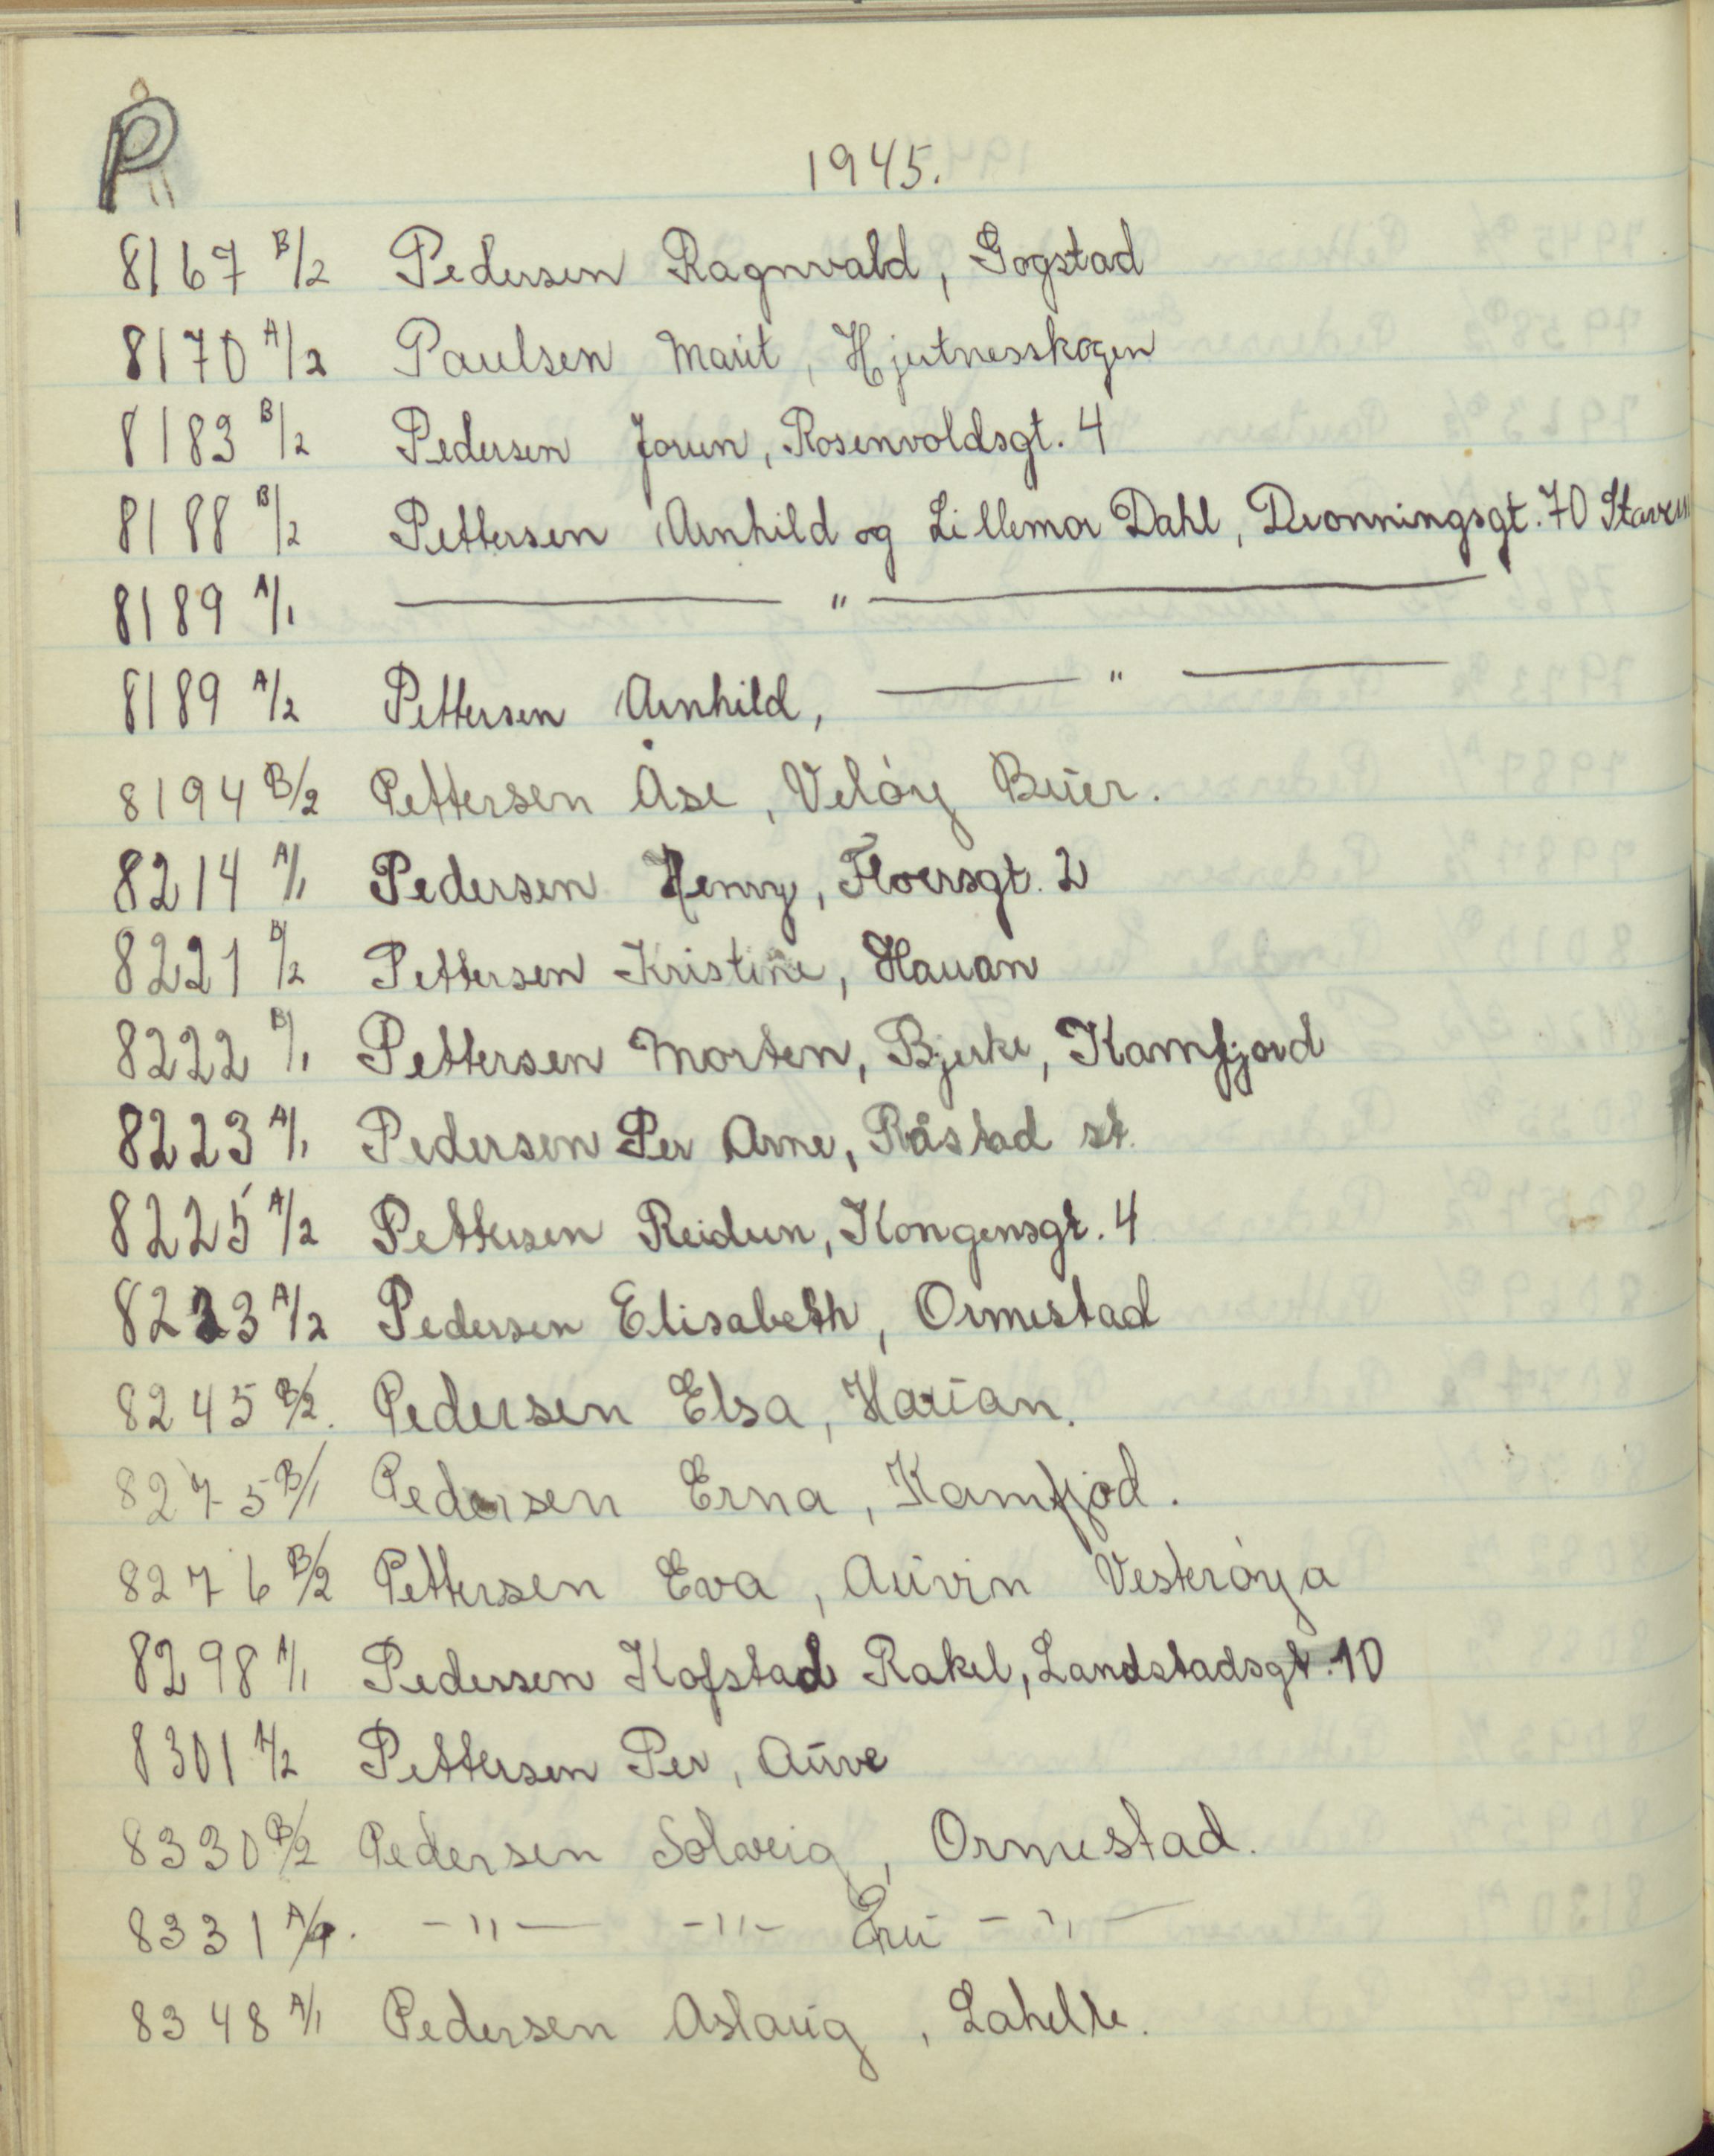 P
1945.
8167 B/2 Pedersen Ragnvald, Gogstad
8170 A/2 Paulsen Marit, Hjertnesskogen
8183 B/2 Pedersen Jorun, Rosenvoldsgt. 4
8188 B/2 Pettersen Arnhild og Lillemor Dahl, Dronningsgt. 70 Stavern
8189 A/1 — " —
8189 A/2 Pettersen Arnhild, — " —
8194 B/2 Pettersen Åse, Veløy Buer.
8214 A/1 Pedersen Henry, Floersgt. 2
8221 B/2 Pettersen Kristine, Hauan
8222 B/1 Pettersen Morten, Bjerke, Kamfjord
8223 A/1 Pedersen Per Arne, Råstad st.
8225 A/2 Pettersen Reidun, Kongensgt. 4
8233 A/2 Pedersen Elisabeth, Ormestad
8245 B/2. Pedersen Elsa, Hauan.
8275 B/1 Pedersen Erna, Kamfjod.
8276 B/2 Pettersen Eva, Auvin Vesterøya
8298 A/1 Pedersen Kofstad Rakel, Landstadsgt. 10
8301 A/2 Pettersen Per, Auve
8330 B/2 Pedersen Solveig, Ormestad.
8331 A/1. -"- -"- Fru -"-
8348 A/1 Pedersen Aslaug, Lahelle.